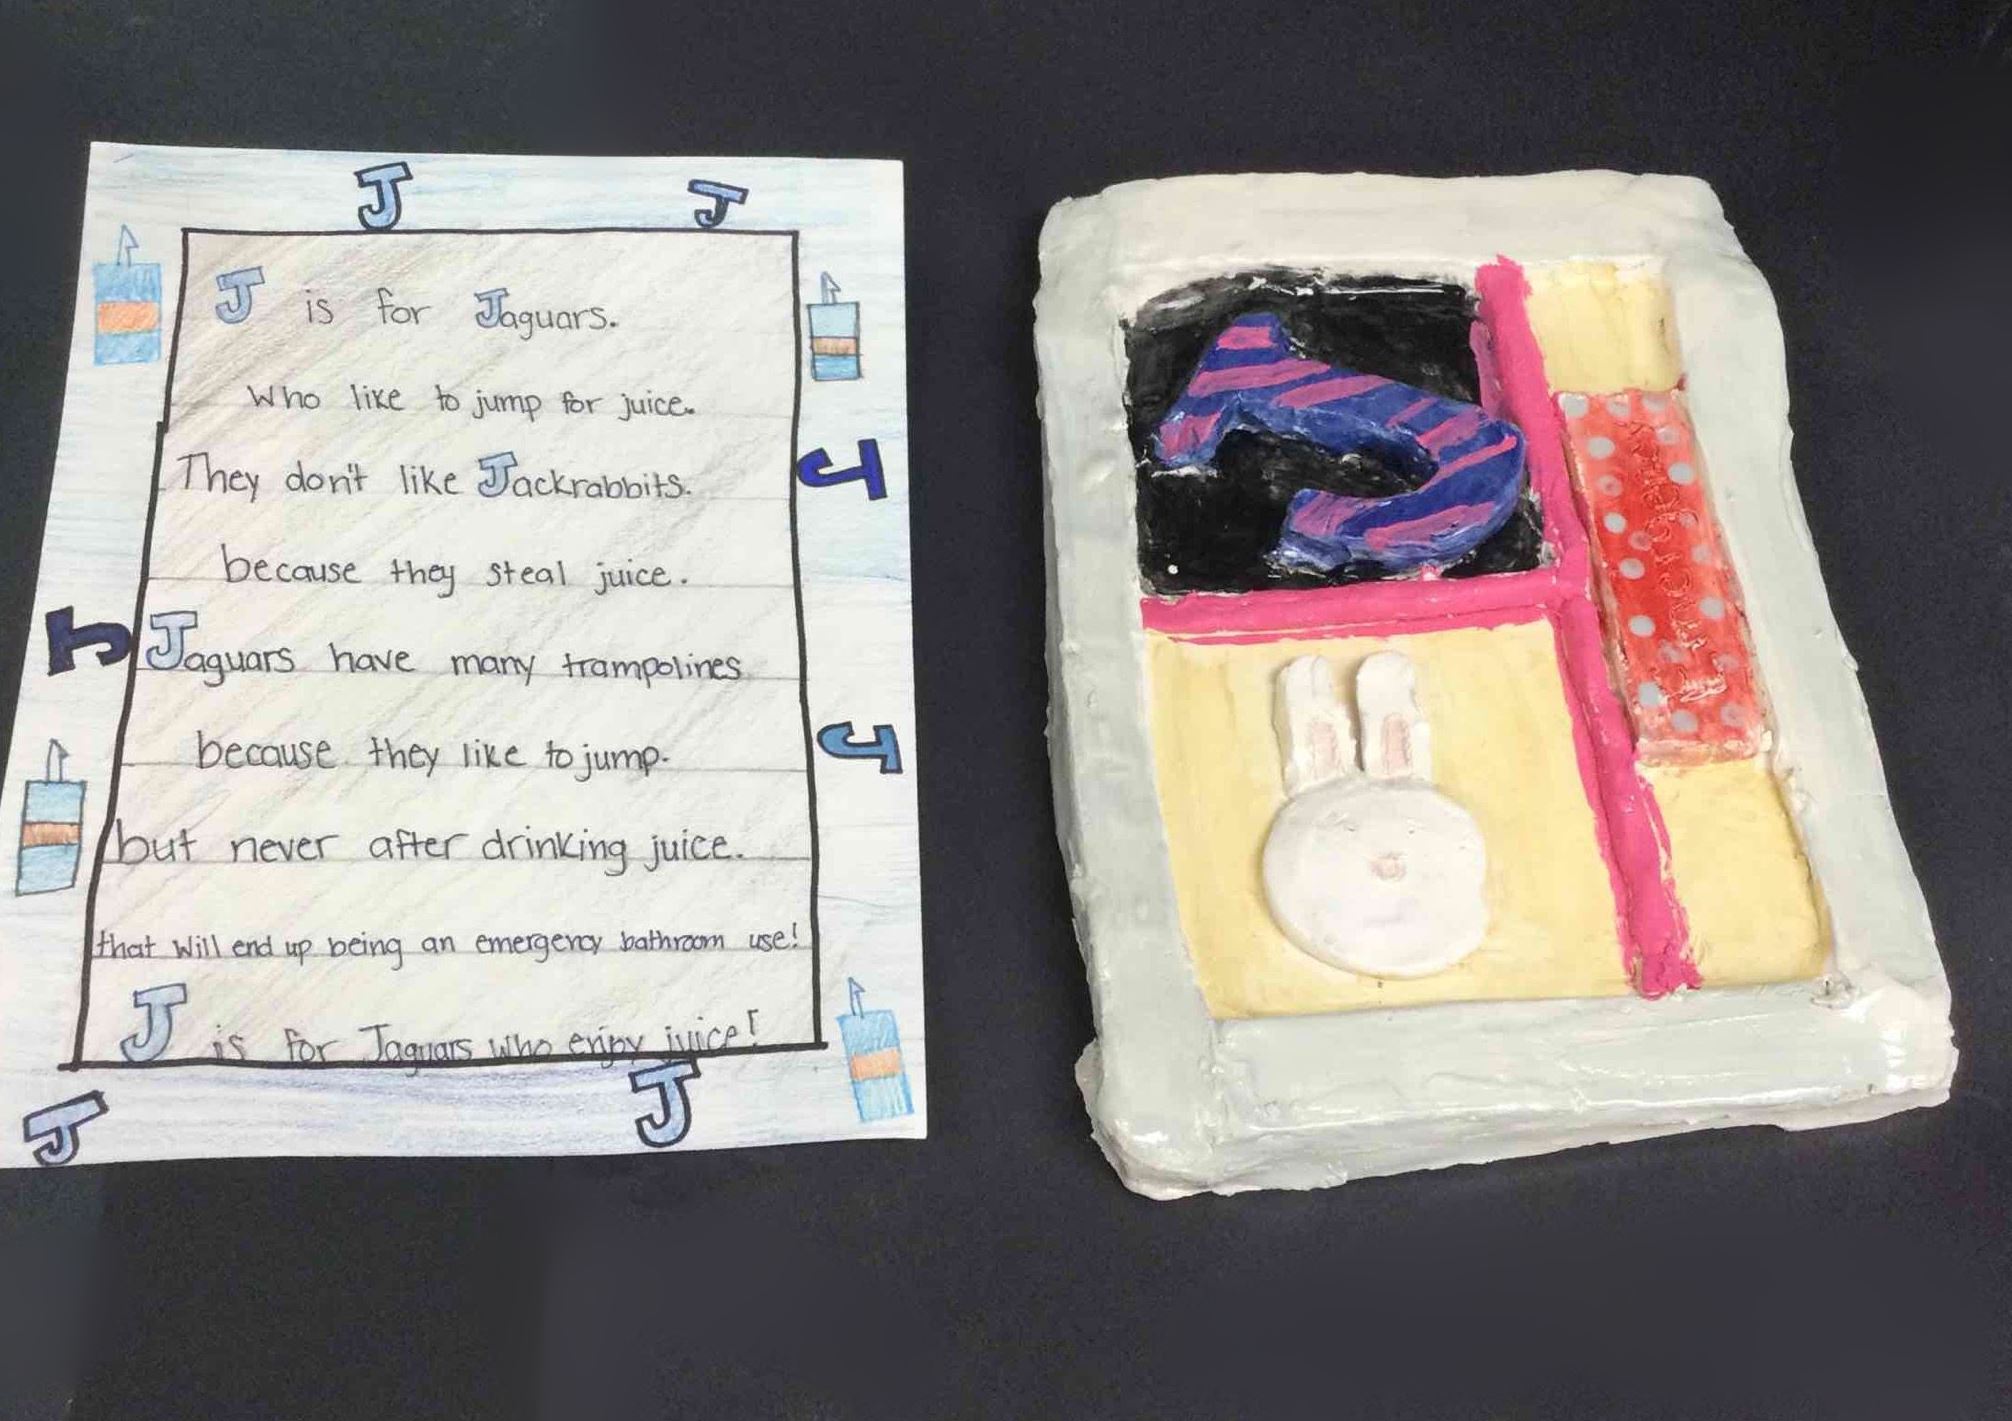 J J
J is for Jaguars.
Who like to jump for juice.
They don't like Jackrabbits.
because they steal juice.
Jaguars have many trampolines
because they like to jump.
but never after drinking juice.
that will end up being an emergency bathroom use!
J is for Jaguars who enjoy juice!
J
J
J
J J
J